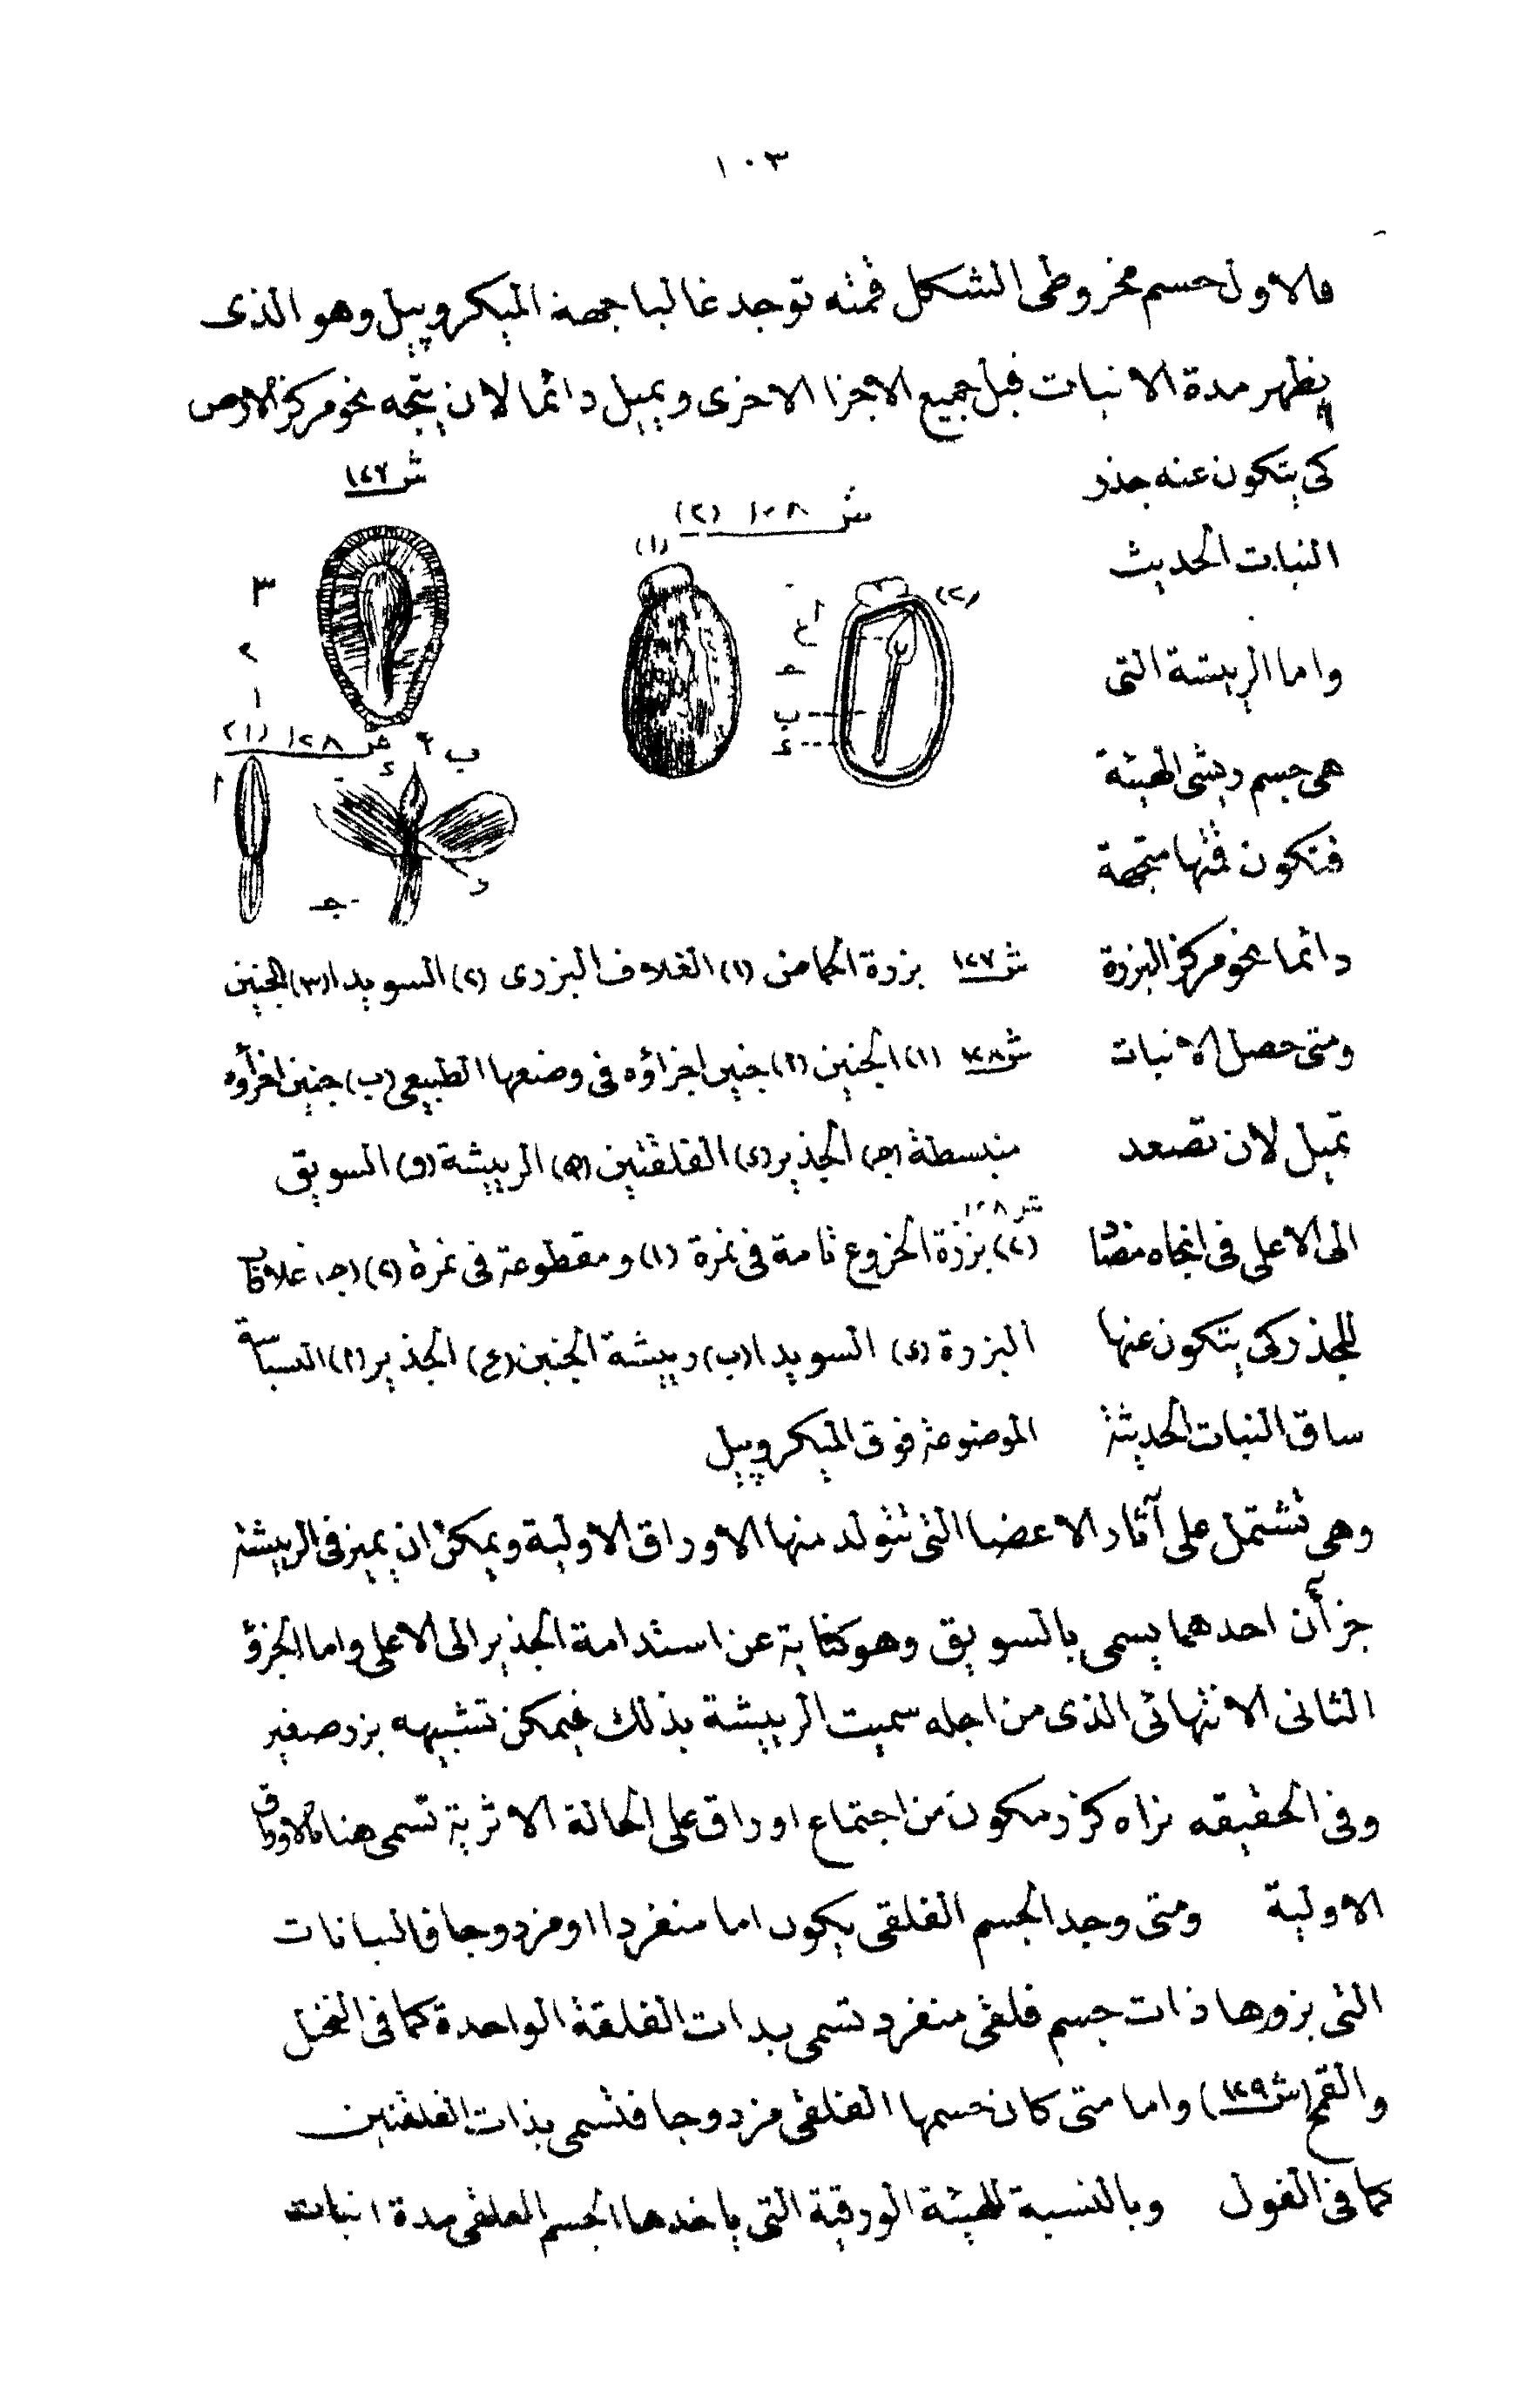 ١٠٣
فالاول جسم مخروطى الشكل قمته توجد غالبا جهة الميكروپيل وهو الذى
يظهر مدة الانبات قبل جميع الاجزا الاخرى ويميل دائما لان يتجه نحو مركز الارض
كى يتكون عنه جذر
النبات الحديث
واما الريشة التى
هى جسم ريشى الهيئة
فتكون قمتها متجهة
دائما نحو مركز البزرة
ومتى حصل الانبات
تميل لان تصعد
الى الاعلى فى اتجاه مضاد
للجذر كى يتكون عنها
ساق النبات الحديثة
ش ١٢٧
ش ١٢٨ (٢)
(١)
(٢)
ا
ع
جـ
ب
د
٣
٢
١
ش ١٢٨ (١)
ا
ب
د
جـ
ش ١٢٧ بزرة الحامض (١) الغلاف البزرى (٢) السويدا (٣) الجنين
ش ١٢٨ (١) الجنين (ا) جنين اجزاؤه فى وضعها الطبيعى (ب) جنين اجزاؤه
منبسطة (جـ) الجذير (د) الفلقتين (هـ) الرييشة (و) السويق
ش ١٢٨
(٢) بزرة الخروع تامة فى نمرة (١) ومقطوعة فى نمرة (٢) (جـ) غلافات
البزرة (د) السويدا (ب) رييشة الجنين (ع) الجذير (ا) البسباسة
الموضوعة فوق الميكروپيل
وهى تشتمل على آثار الاعضا التى تتولد منها الاوراق الاولية ويمكن ان يميز فى الرييشة
جزأن احدهما يسمى بالسويق وهو كناية عن استدامة الجذير الى الاعلى واما الجزؤ
الثانى الانتهائى الذى من اجله سميت الرييشة بذلك فيمكن تشبيهه بزر صغير
وفى الحقيقه نراه كزر مكون من اجتماع اوراق على الحالة الاثرية تسمى هنا بالاوراق
الاولية ومتى وجد الجسم الفلقى يكون اما منفردا او مزدوجا فالنباتات
التى بزورها ذات جسم فلقى منفرد تسمى بذات الفلقة الواحدة كما فى النخل
والقمح (ش ١٢٩) واما متى كان جسمها الفلقى مزدوجا فتسمى بذات الفلقتين
كما فى الفول وبالنسبة للهيئة الورقية التى ياخذها الجسم الفلقى مدة انبات